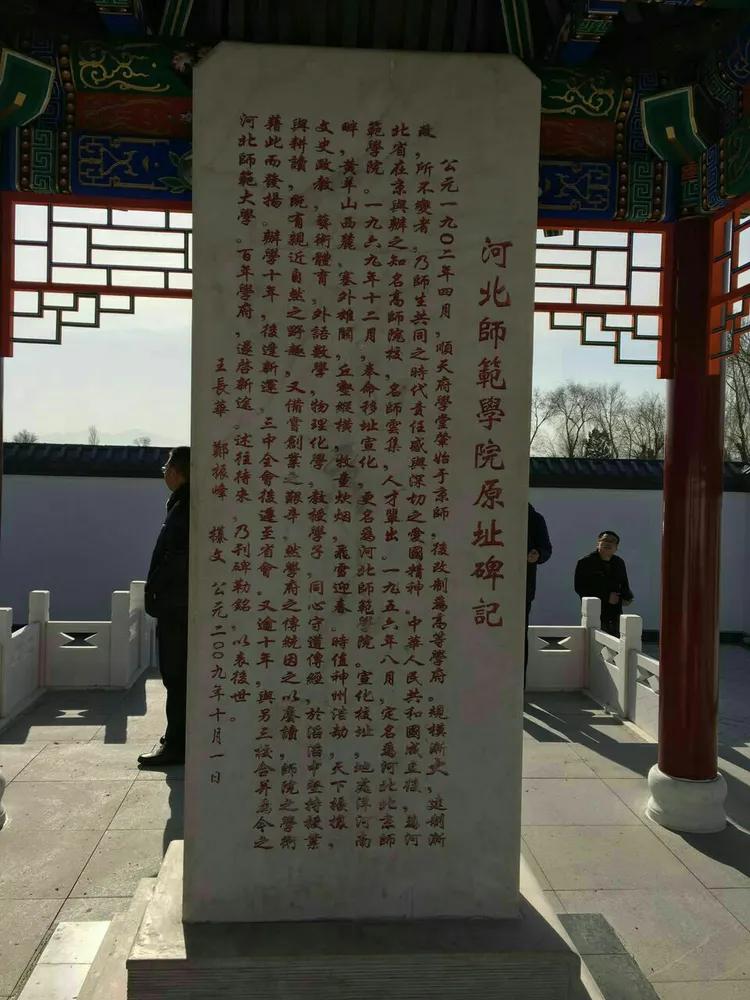 河北師範學院原址碑記
公元一九〇二年四月，順天府學堂肇始于京師，後改制爲高等學府。規模漸大，遞制漸
改，所不變者，乃師生共同之時代責任感與深切之愛國精神。中華人民共和國成立後，爲河
北省在京興辦之知名高師院校，名師雲集，人才輩出。一九五六年八月，定名爲河北北京師
範學院。一九六九年十二月，奉命移址宣化，更名爲河北師範學院。宣化校址，地處洋河南
畔，黃羊山西麓，塞外雄關，丘壑縱橫，牧童炊烟，飛雪迎春。時值神州浩劫，天下擾攘，
文史政教，藝術體育，外語數學，物理化學，教授學子，同心守道傳經，於浩浩中堅持授業
與耕讀，院有親近自然之野趣，又備嘗創業之艱辛，然學府之傳統因之以賡續，師院之學術
藉此而發揚。辦學十年，後逢新運，三中全會後遷至省會。又逾十年，與另三校合并爲今之
河北師範大學。百年學府，還啓新途。述往待來，乃刊碑勒銘，以表後世。
王長華 鄭振峰 撰文 公元二〇〇九年十月一日